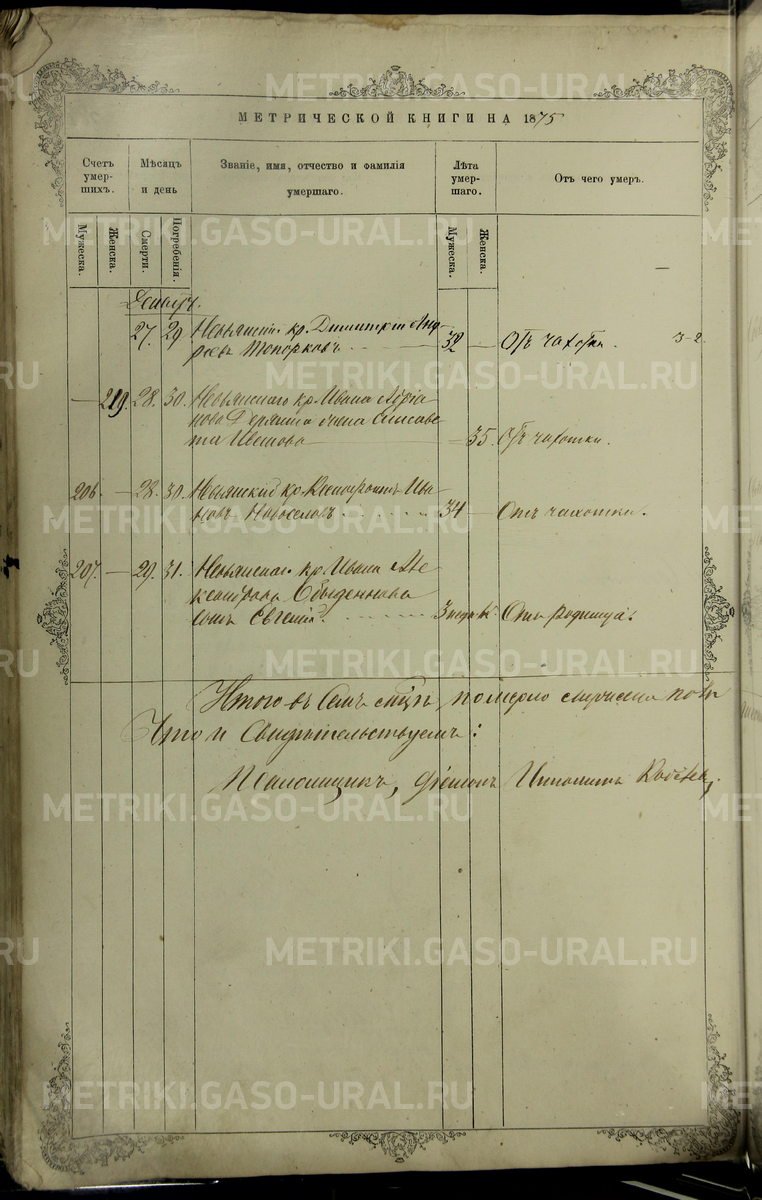 МЕТРИЧЕСКОЙ КНИГИ НА 1875
Счетъ умер-шихъ.
Мѣсяцъ и день
Званіе, имя, отчество и фамилія умершаго.
Лѣта умер-шаго.
Отъ чего умеръ.
Мужеска.
Женска.
Смерти.
Погребенія.
Мужеска.
Женска.
27. 29 Невьянскій кр. Димитрій Анд- 32 Отъ чахотки. 3-2.
реевъ Топорковъ
219. 28. 30. Невьянскаго кр. Ивана
жена Елисаве
та Иванова 35. Отъ чахотки.
206. 28. 30. Невьянскій кр. Ива
новъ Новоселовъ 34 Отъ чахотки.
207. 29. 31. Невьянскаго кр. Ивана Але
ксандрова Обыденнова
сынъ Евгеній. 3 недѣль Отъ родимца.
Итого въ семъ померло
Что и Свидѣтельствуемъ:
Псаломщикъ, Діаконъ Ипполитъ
METRIKI.GASO-URAL.RU